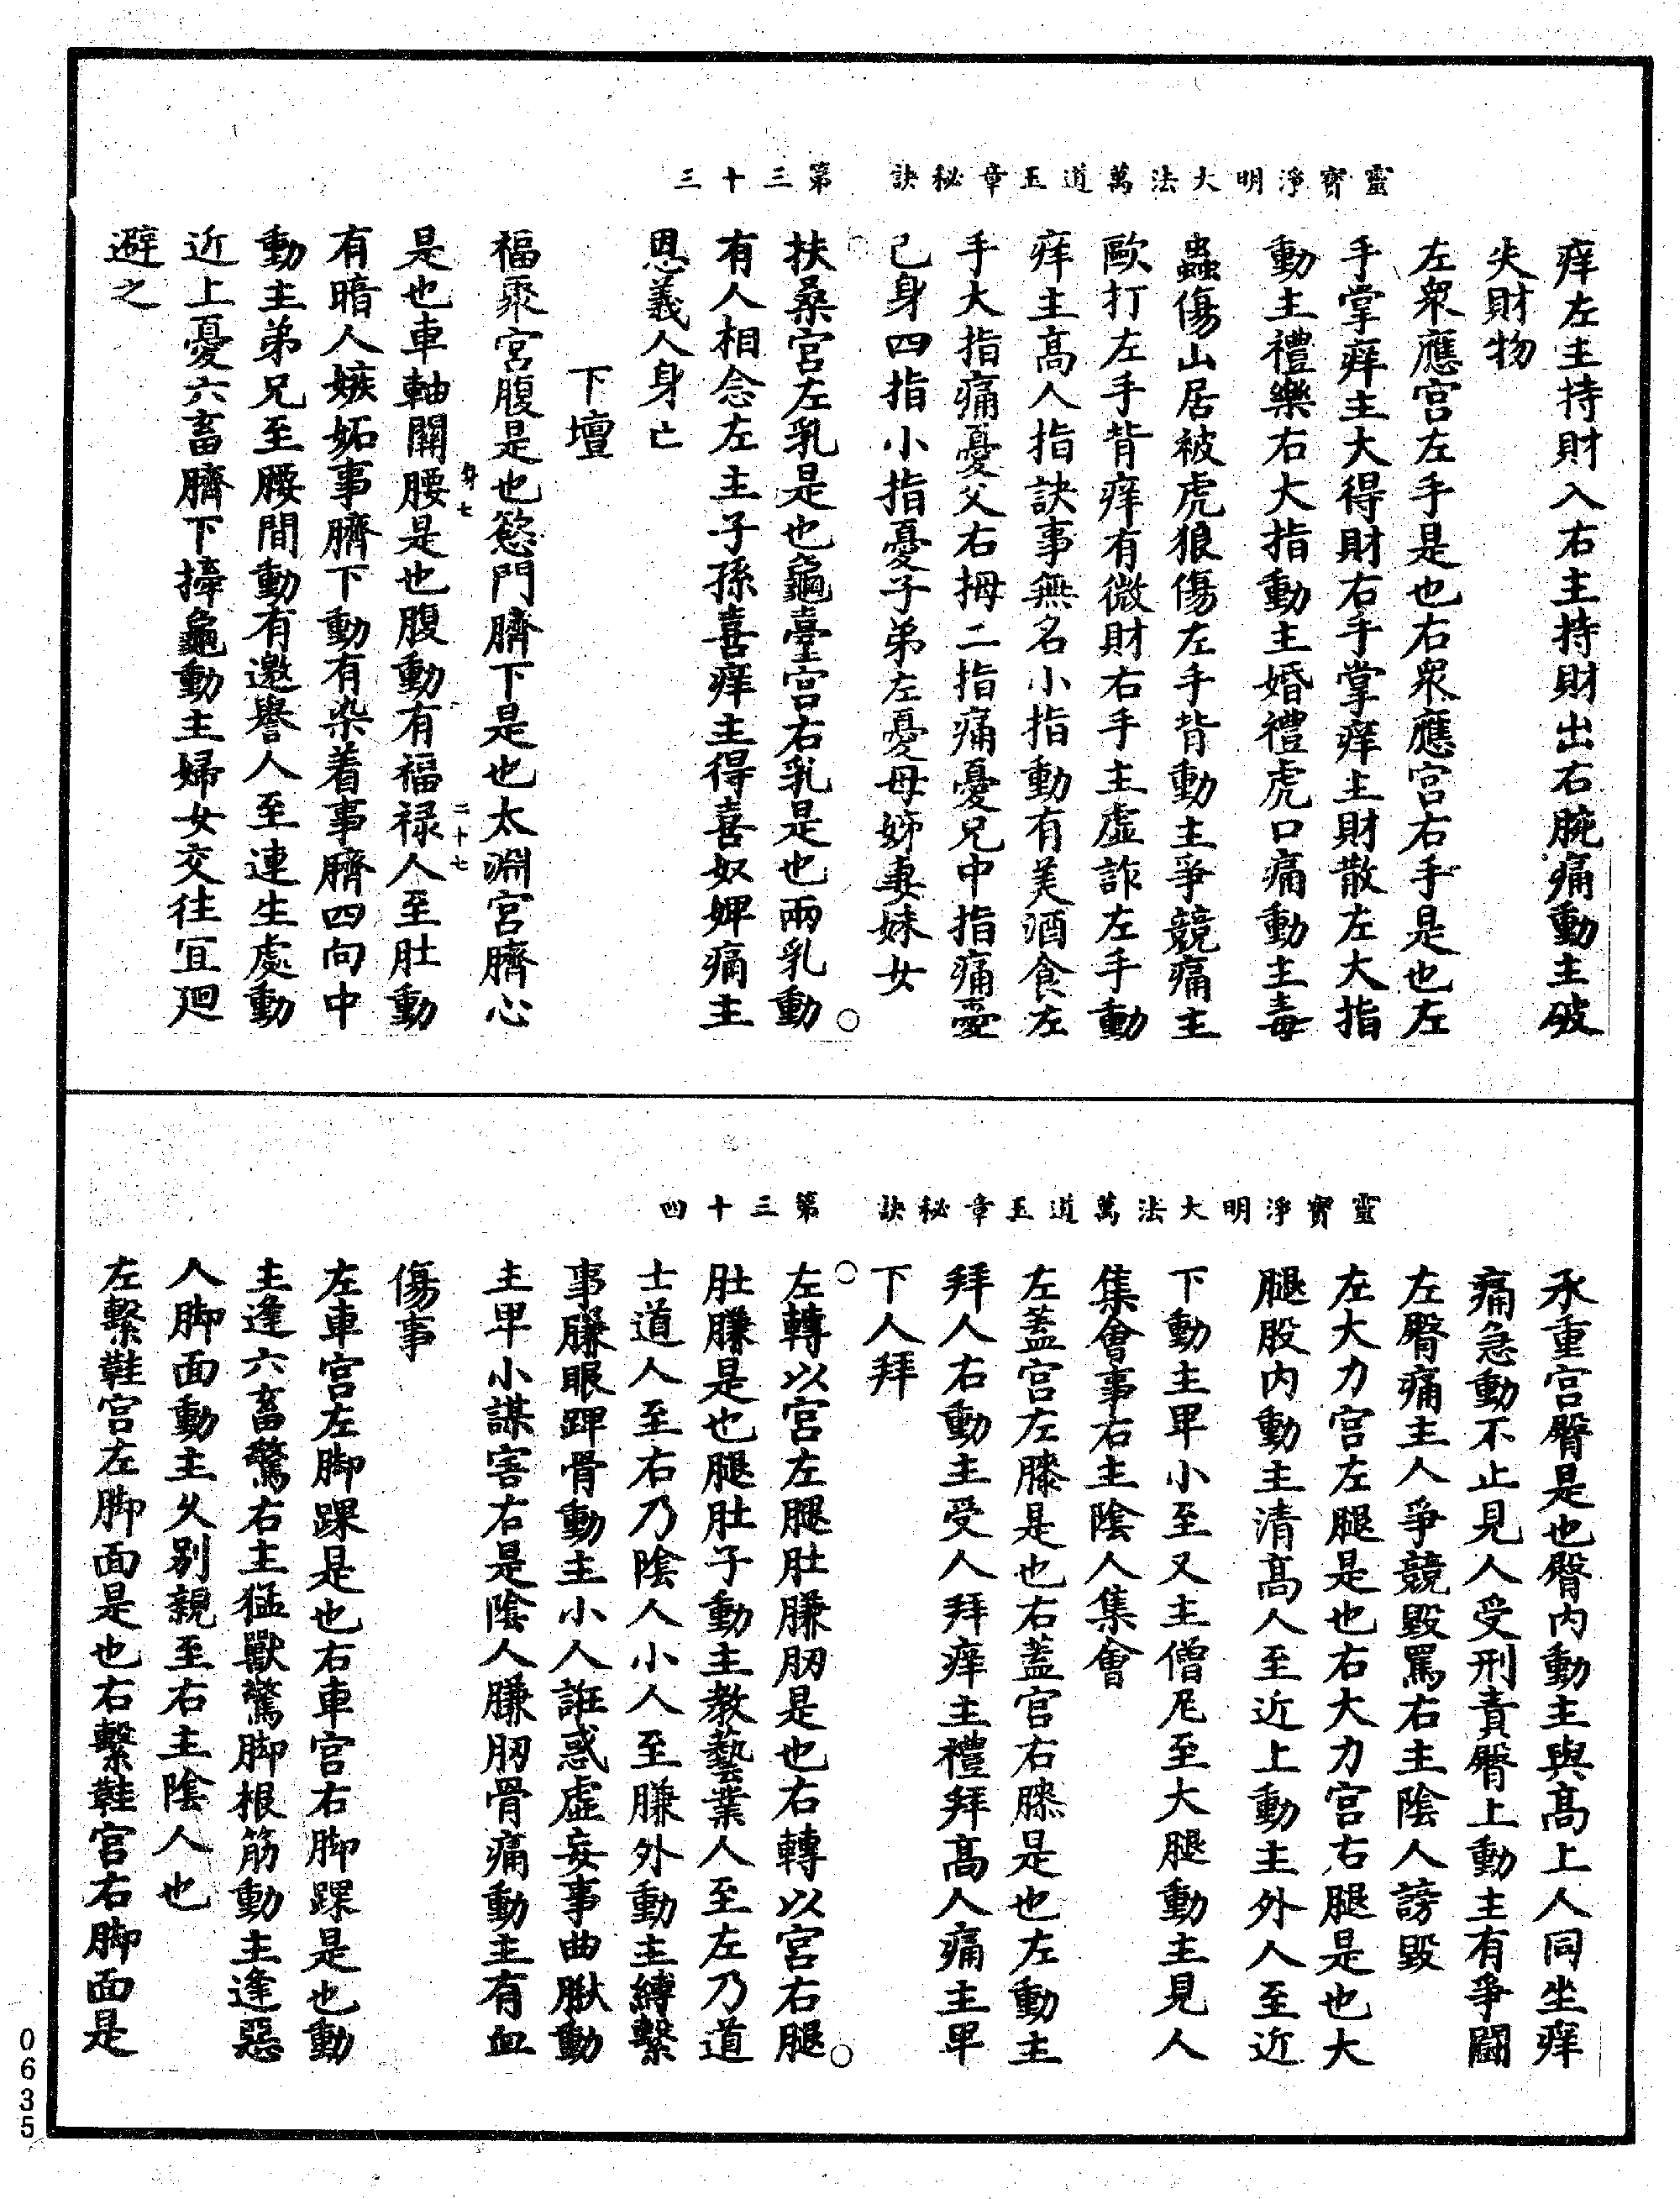 靈寶淨明大法萬道玉章秘訣　第三十三
痒左主持財入右主持財出右腕痛動主破
失財物
左衆應宫左手是也右衆應宫右手是也左
手掌痒主大得財右手掌痒主財散左大指
動主禮樂右大指動主婚禮虎口痛動主毒
蟲傷山居被虎狼傷左手背動主爭競痛主
歐打左手背痒有微財右手主虛詐左手動
痒主髙人指訣事無名小指動有美酒食左
手大指痛憂父右拇二指痛憂兄中指痛憂
己身四指小指憂子弟左憂母姊妻妹女
扶桑宫左乳是也龜臺宫右乳是也兩乳動
有人相念左主子孫喜痒主得喜奴婢痛主
恩義人身亡
下壇
福聚宮腹是也慾門臍下是也太淵宮臍心
是也車軸關腰是也腹動有福禄人至肚動
身七
二十七
有暗人嫉妬事臍下動有染着事臍四向中
動主弟兄至腰間動有邀譽人至連生處動
近上憂六畜臍下捧龜動主婦女交往宜廻
避之
靈寶淨明大法萬道玉章秘訣　第三十四
永重宫臀是也臀内動主與髙上人同坐痒
痛急動不止見人受刑責臀上動主有爭鬪
左臀痛主人爭競毀罵右主陰人謗毀
左大力宫左腿是也右大力宫右腿是也大
腿股内動主清髙人至近上動主外人至近
下動主卑小至又主僧尼至大腿動主見人
集會事右主陰人集會
左蓋宫左膝是也右蓋宫右膝是也左動主
拜人右動主受人拜痒主禮拜髙人痛主卑
下人拜
左轉以宫左腿肚臁肕是也右轉以宫右腿
肚臁是也腿肚子動主教藝業人至左乃道
士道人至右乃陰人小人至臁外動主縛繫
事臁眼踝骨動主小人誑惑虛妄事曲膁動
主卑小謀害右是陰人臁肕骨痛動主有血
傷事
左車宫左脚踝是也右車宫右脚踝是也動
主逢六畜驚右主猛獸驚脚根筋動主逢惡
人脚面動主久别親至右主陰人也
左繫鞋宫左脚面是也右繫鞋宫右脚面是
0635